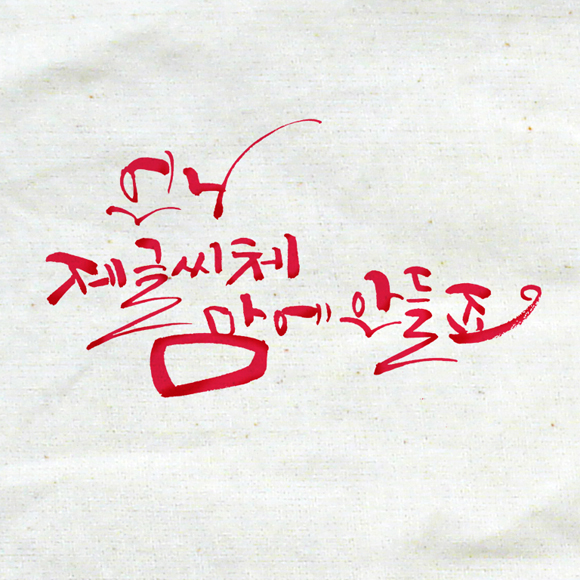 언니
제글씨체
맘에안들죠